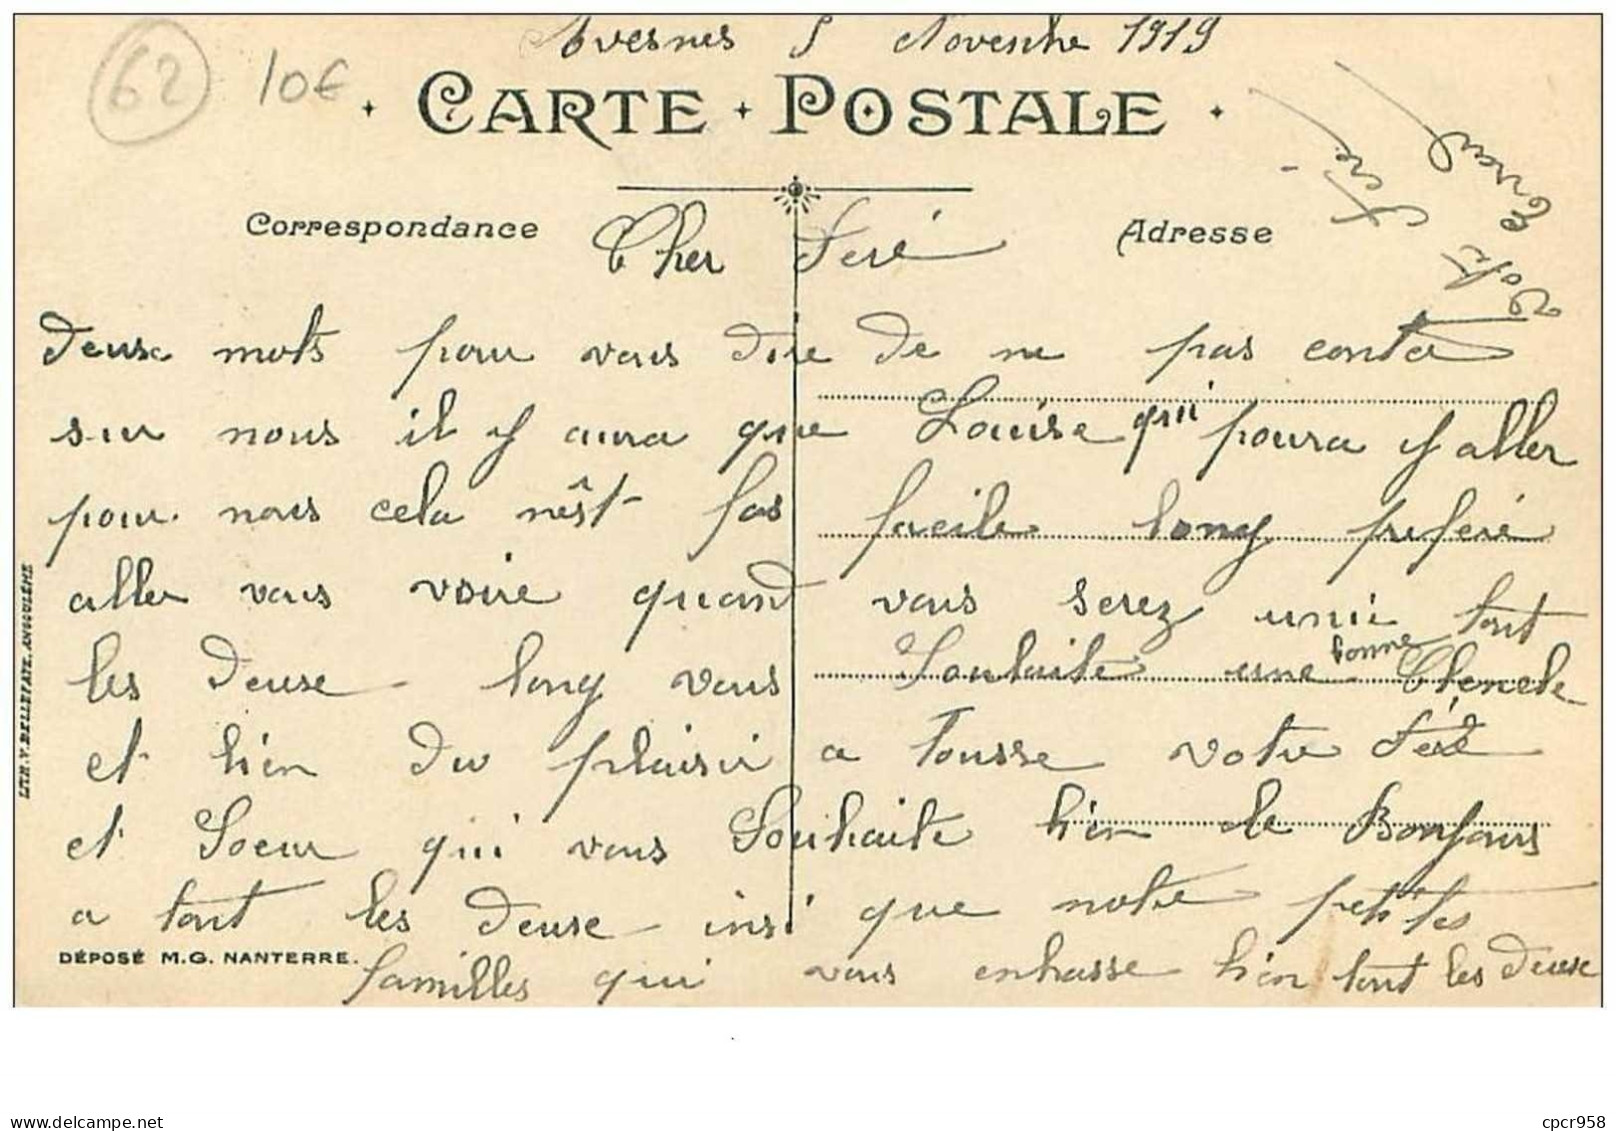 Avesnes 5 Novenbre 1919
62
10€
CARTE POSTALE
Correspondance
Adresse
Cher Feré
deuse mots pour vous dire de ne pas conter
sur nous il y aura que Louise qui poura y aller
pour nous cela nêst pas facile long preferé
aller vous voire quand vous serez unie tout
les deuse long vous Souhaite une bonne
et bien du plaisir a tousse votre Feré
et Soeur qui vous Souhaite bien de Bonjours
a tout les deuse insi que notre petites
familles qui vous enbrasse bien tout les deuse
Votre
Feré
LITH. V. BELLEFAYE, ANGOULÊME
DÉPOSÉ M.G. NANTERRE.
delcampe.net
cpcr958